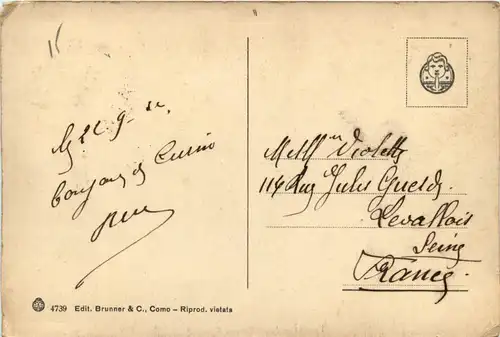 Bonjour de
Melle Violette
114 Rue Jules Guesde
Levallois
Seine
France
4739 Edit. Brunner & C., Como – Riprod. vietata